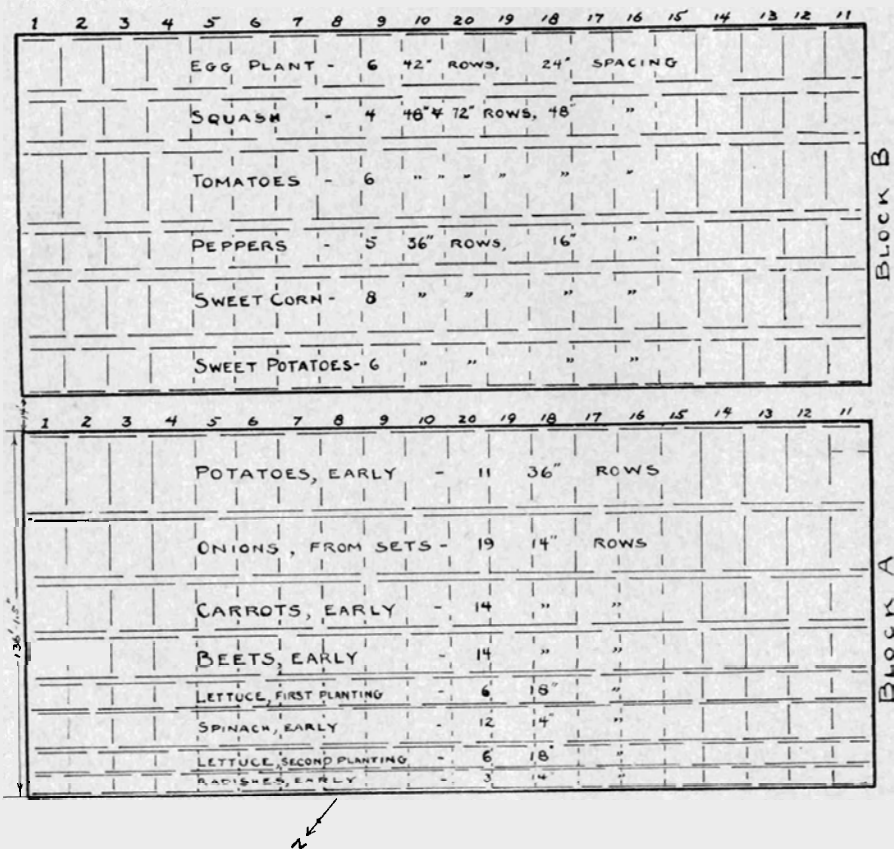 1 2 3 4 5 6 7 8 9 10 20 19 18 17 16 15 14 13 12 11
EGG PLANT - 6 42" ROWS, 24" SPACING
SQUASH - 4 48" & 72" ROWS, 48" "
TOMATOES - 6 " " " " " "
PEPPERS - 5 36" ROWS, 16" "
SWEET CORN - 8 " " " "
SWEET POTATOES - 6 " " " "
BLOCK B
1 2 3 4 5 6 7 8 9 10 20 19 18 17 16 15 14 13 12 11
POTATOES, EARLY - 11 36" ROWS
ONIONS, FROM SETS - 19 14" ROWS
CARROTS, EARLY - 14 " "
BEETS, EARLY - 14 " "
LETTUCE, FIRST PLANTING - 6 18" "
SPINACH, EARLY - 12 14" "
LETTUCE, SECOND PLANTING - 6 18" "
RADISHES, EARLY - 3 14" "
BLOCK A
136' 1.5"
N